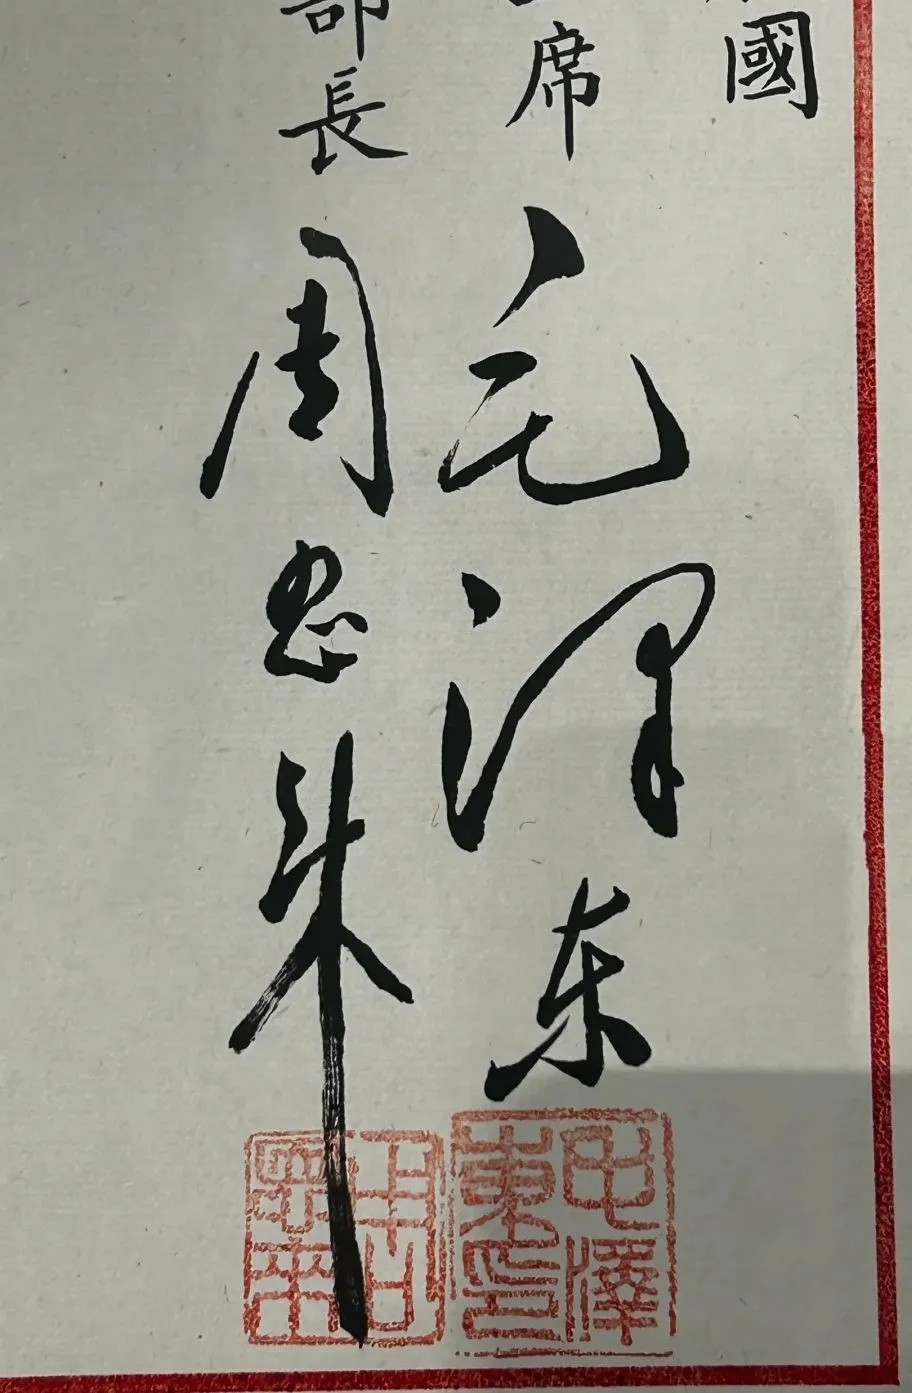 國
席 毛泽东
部長 周恩来
毛澤東印
周恩來